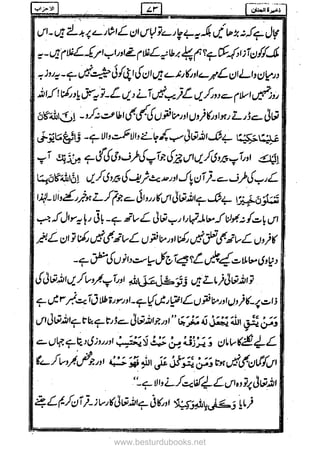 الاحزاب ۷۳ ذخیرۃ الجنان
مجال ہے کہ نہ بڑھائیں بلکہ یہ بے چارے تو لباس ان کے اشارے پر بدلتے ہیں۔ اس
ملک کو کون آزاد کہہ سکتا ہے؟ ہم پہلے برطانیہ کے غلام تھے اور اب امریکہ کے غلام ہیں۔ یہ
درمیان والے ان کے مہرے اور کارندے ہیں ان کی اپنی کوئی حیثیت نہیں ہے۔ یہ روز بہ
روز تمہیں اسلام سے دور کریں گے قریب نہیں آنے دیں گے۔ تو یہ سبق یاد رکھنا! کہ اللہ
تعالیٰ سے ڈرتے رہو اور کافروں اور منافقوں کی کبھی بھی اطاعت نہ کرو۔ اِنَّ اللّٰهَ كَانَ
عَلِيْمًا حَكِيْمًا بے شک اللہ تعالیٰ سب کچھ جاننے والا حکمت والا ہے۔ وَاتَّبِعْ مَا يُوْحٰٓى
اِلَيْكَ اور آپ پیروی کریں اس چیز کی جو آپ کی طرف وحی کی گئی ہے مِنْ رَّبِّكَ آپ
کے رب کی طرف سے۔ قرآن پاک اور حدیث شریف کی پیروی کریں اِنَّ اللّٰهَ كَانَ بِمَا
تَعْمَلُوْنَ خَبِيْرًا بے شک ہے اللہ تعالیٰ اس کارروائی سے جو تم کرتے ہو خبر رکھنے والا۔ لہٰذا
اس بات کو نہ بھولنا کہ معاملہ تمہارا رب تعالیٰ کے ساتھ ہے۔ باقی رہا یہ سوال کہ جب
کافروں کے ساتھ بھی تعلق نہیں رکھنا اور منافقوں کے ساتھ بھی نہیں رکھنا تو ان کے بغیر
دنیاوی معاملات کیسے چلیں گے؟ جیسے آج کل سیاست دانوں کی منطق ہے۔
تو اللہ تعالیٰ فرماتے ہیں وَّتَوَكَّلْ عَلَى اللّٰهِ اور آپ بھروسا کریں اللہ تعالیٰ کی
ذات پر۔ کافروں اور منافقوں کے اختیار میں کیا ہے۔ اور سورۃ طلاق آیت نمبر ۳ میں ہے
وَمَنْ يَّتَّقِ اللّٰهَ يَجْعَلْ لَّهٗ مَخْرَجًا "اور جو اللہ تعالیٰ سے ڈرتا ہے بناتا ہے اللہ تعالیٰ اس
کے لیے نکلنے کا سامان وَّ يَرْزُقْهُ مِنْ حَيْثُ لَا يَحْتَسِبُ اور روزی دیتا ہے جہاں سے
اس کو گمان بھی نہیں ہوتا وَمَنْ يَّتَوَكَّلْ عَلَى اللّٰهِ فَهُوَ حَسْبُهٗ اور جو شخص بھروسا کرے گا
اللہ تعالیٰ پر تو وہ اس کے لیے کفایت کرنے والا ہے۔"
فرمایا وَكَفٰى بِاللّٰهِ وَكِيْلًا اور کافی ہے اللہ تعالیٰ کارساز۔ قرآن کریم کے جتنے
www.besturdubooks.net